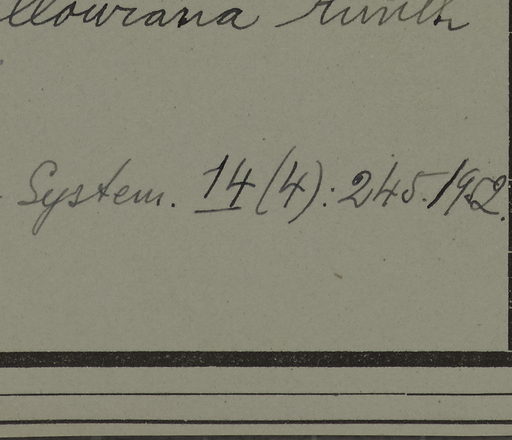 llowiana Kunth
System. 14(4): 245. 1952.